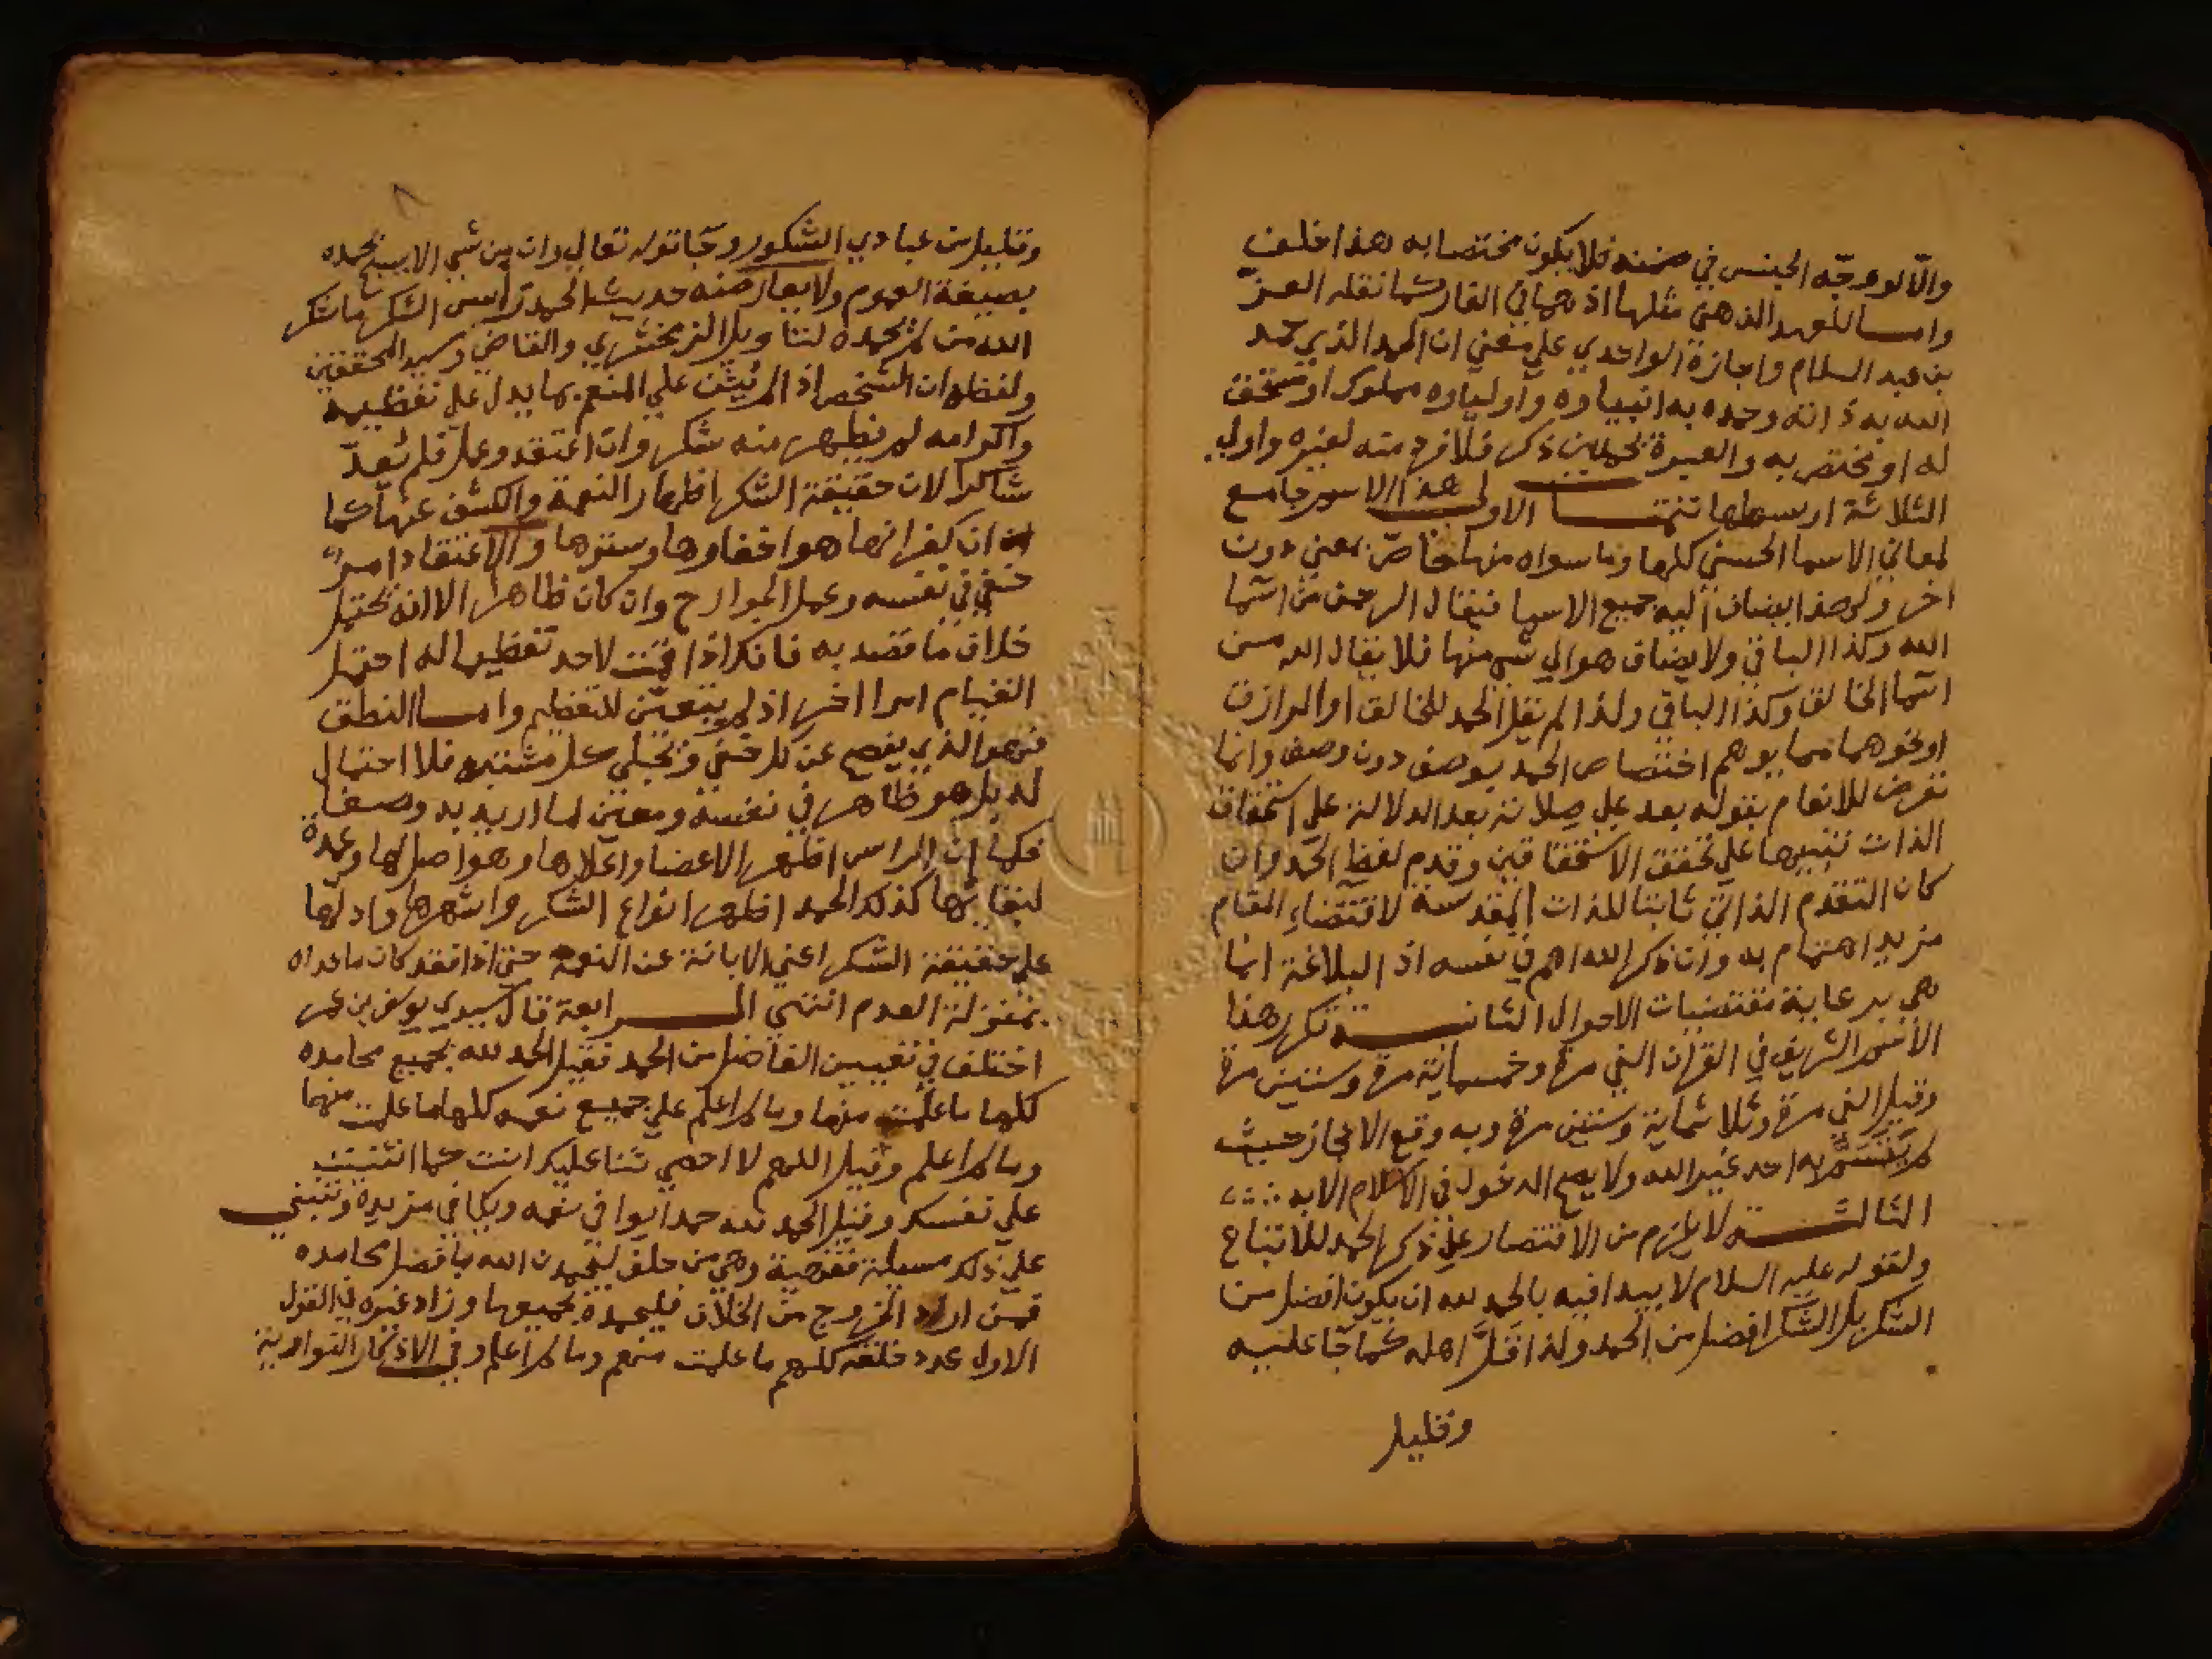 والا لوجه الجنس في ضمنه فلا يكون مختصا به هذا خلف
وامـا للعهد الذهني مثلها اذ هما في الغار كما نقله العز
بن عبد السلام واجازة الواحدي علي معني ان الحمد الذي حمد
الله به ذاته وحمده به انبياوه واولياوه مملوك او مستحق
له او مختص به والعبرة بحمد من ذكر فلا فرد منه لغيره واولي
الثلاثة اوسطها تتمـات الاولي هذا الاسم جامع
لمعاني الاسما الحسني كلها وما سواه منها خاص بمعني دون
اخر ولهذا يضاف اليه جميع الاسما فيقال الرحمن من اسما
الله وكذا الباقي ولا يضاف هو الي شي منها فلا يقال الله من
اسما الخالق وكذا الباقي ولذا لم يقل الحمد للخالق او الرازق
او نحوهما مما يوهم اختصاص الحمد بوصف دون وصف وانما
تعرض للانعام بقوله بعد علي صلاته بعد الدلالة علي استحقاق
الذات تنبيها علي تحقق الاستحقاقين وقدم لفظ الحمد وان
كان التقدم الذاتي ثابتا للذات المقدسة لاقتضاء المقام
مزيد اهتمام به وان ذكر الله اهم في نفسه اذ البلاغة انما
هي برعاية مقتضيات الاحوال الثانيـة تكرر هذا
الاسم الشريف في القران الفي مرة وخمسماية مرة وستين مرة
وقيل الفي مرة وثلاثماية وستين مرة وبه وقع الاعجاز حيث
لم يتسم به احد غير الله ولا يصح الدخول في الاسلام الا به
الثالثـة لا يلزم من الاقتصار علي ذكر الحمد للاتباع
ولقوله عليه السلام لا يبدا فيه بالحمد لله ان يكون افضل من
الشكر بل الشكر افضل من الحمد ولذا قل اهله كما جا عليه
وقليل
وقليل من عبادي الشكور وجا قوله تعالي وان من شي الا يسبح بحمده
بصيغة العموم ولا يعارضه حديث الحمد راس الشكر ما شكر
الله من لم يحمده لتاويل الزمخشري والقاضي وسيد المحققين
ولفظه ان الشخص اذا لم يثن علي المنعم بما يدل علي تعظيمه
واكرامه لم يظهر منه شكر وان اعتقد وعمل فلم يعد
شاكرا لان حقيقة الشكر اظهار النعمة والكشف عنها كما
ان كفرانها هو اخفاوها وسترها والاعتقاد امر
خفي في نفسه وعمل الجوارح وان كان ظاهرا الا انه يحتمل
خلاف ما قصد به فانك اذا قمت لاحد تعظيما له احتمل
القيام امرا اخر اذ لم يتعين للتعظيم وامـا النطق
فهو الذي يفصح عن كل خفي ويجلي كل مشتبه فلا احتمال
له بل هو ظاهر في نفسه ومعين لما اريد به وصفا
فكما ان الراس اظهر الاعضا واعلاها وهو اصل لها وعمدة
لبقايها كذلك الحمد اظهر انواع الشكر واشهرها وادلها
علي حقيقة الشكر اعني الابانة عن النعمة حتي اذا فقد كان ما عداه
بمنزلة العدم انتهي الـرابعة قال سيدي يوسف بن عمر
اختلف في تعيين الفاضل من الحمد فقيل الحمد لله بجميع محامده
كلها ما علمت منها وما لم اعلم علي جميع نعمه كلها ما علمت منها
وما لم اعلم وقيل اللهم لا احصي ثنا عليك انت كما اثنيت
علي نفسك وقيل الحمد لله حمدا يوافي نعمه ويكافي مزيده وينبني
علي ذلك مسيلة فقهية وهي من حلف ليحمدن الله بافضل محامده
فمن اراد الخروج من الخلاف فليحمده بجميعها وزاد غيره في القول
الاول عدد خلقه كلهم ما علمت منهم وما لم اعلم وفي الاذكار النواوية